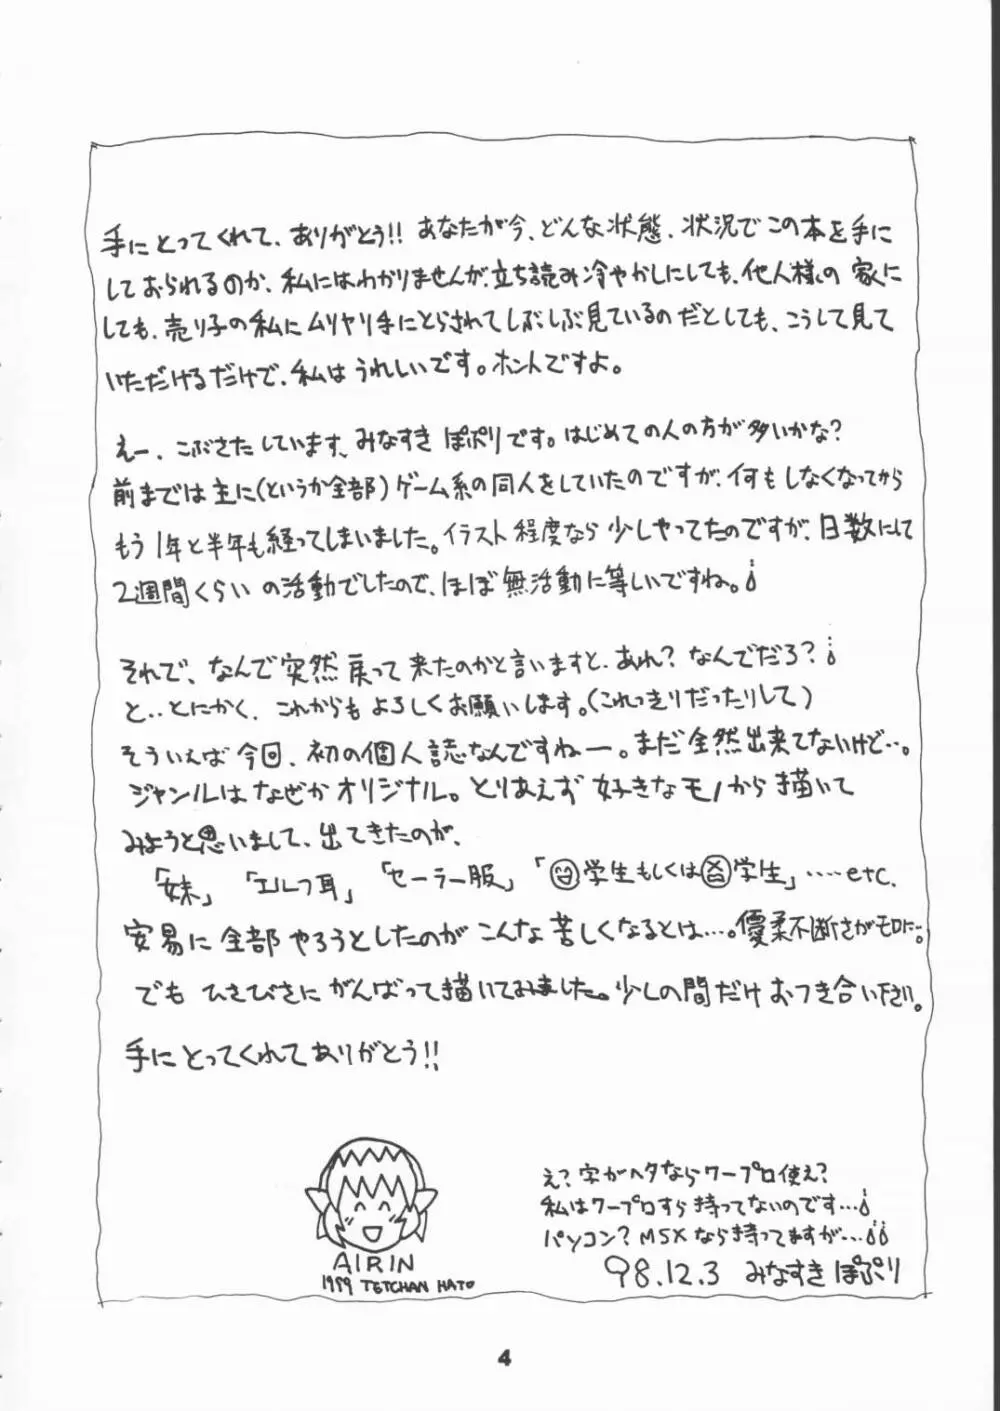 手にとってくれて、ありがとう!! あなたが今、どんな状態、状況でこの本を手に
しておられるのか、私にはわかりませんが、立ち読み冷やかしにしても、他人様の家に
しても、売り子の私にムリヤリ手にとらされてしぶしぶ見ているのだとしても、こうして見て
いただけるだけで、私はうれしいです。ホントですよ。
えー、こぶさたしています、みなすき ぽぷりです。はじめての人の方が多いかな?
前までは主に(というか全部)ゲーム系の同人をしていたのですが、何もしなくなってから
もう1年と半年も経ってしまいました。イラスト程度なら少しやってたのですが、日数にして
2週間くらいの活動でしたので、ほぼ無活動に等しいですね。
それで、なんで突然戻って来たのかと言いますと、あれ? なんでだろ?
と‥とにかく、これからもよろしくお願いします。(これっきりだったりして)
そういえば今回、初の個人誌なんですねー。まだ全然出来てないけど…。
ジャンルはなぜかオリジナル。とりあえず好きなモノから描いて
みようと思いまして、出てきたのが、
「妹」 「エルフ耳」 「セーラー服」 「学生もしくは学生」……etc.
安易に全部やろうとしたのがこんな苦しくなるとは…。優柔不断さがモロに。
でも ひさびさにがんばって描いてみました。少しの間だけおつき合い下さい。
手にとってくれてありがとう!!
え? 字がヘタならワープロ使え?
私はワープロすら持ってないのです…
パソコン? MSXなら持ってますが…
98.12.3 みなすき ぽぷり
AIRIN
1999 TETCHAN HATO
4